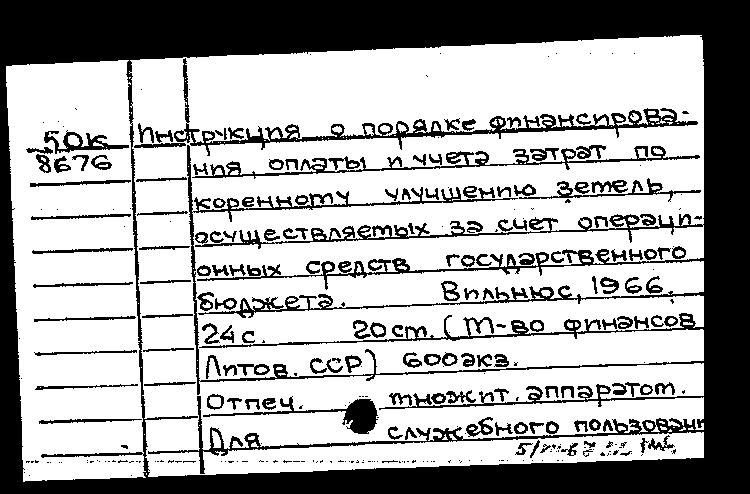 50К
8676
Инструкция о порядке финансирова-
ния, оплаты и учета затрат по
коренному улучшению земель,
осуществляемых за счет операци-
онных средств государственного
бюджета. Вильнюс, 1966.
24с. 20см. (М-во финансов
Литов. ССР) 600экз.
Отпеч. множит. аппаратом.
Для служебного пользован